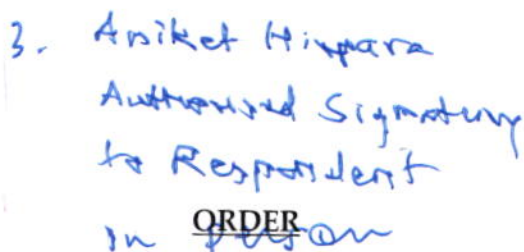 3. Aniket Hirpara
Authorised Signatory
to Respondent
ORDER
in person